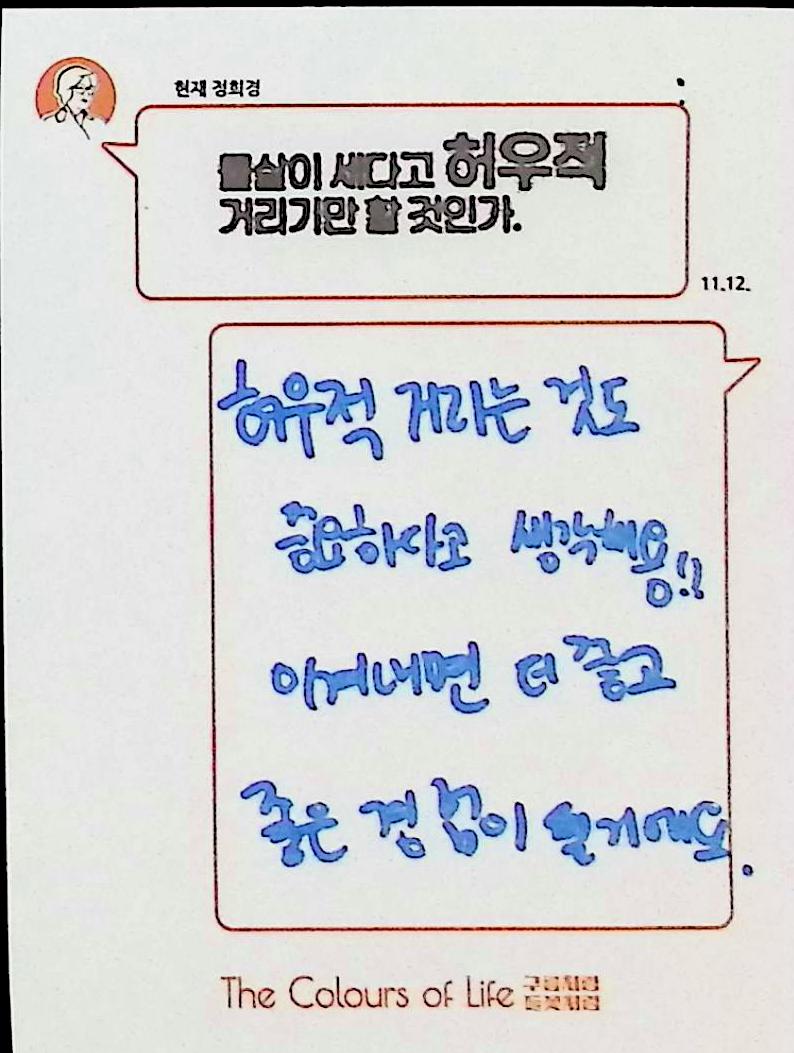 현재 정희경
물살이 세다고 허우적
거리기만 할 것인가.
11.12.
허우적 거리는 것도
중요하다고 생각해용!!
이겨내면 더 좋고
좋은 경험이 될거예요.
The Colours of Life 구름처럼
들꽃처럼